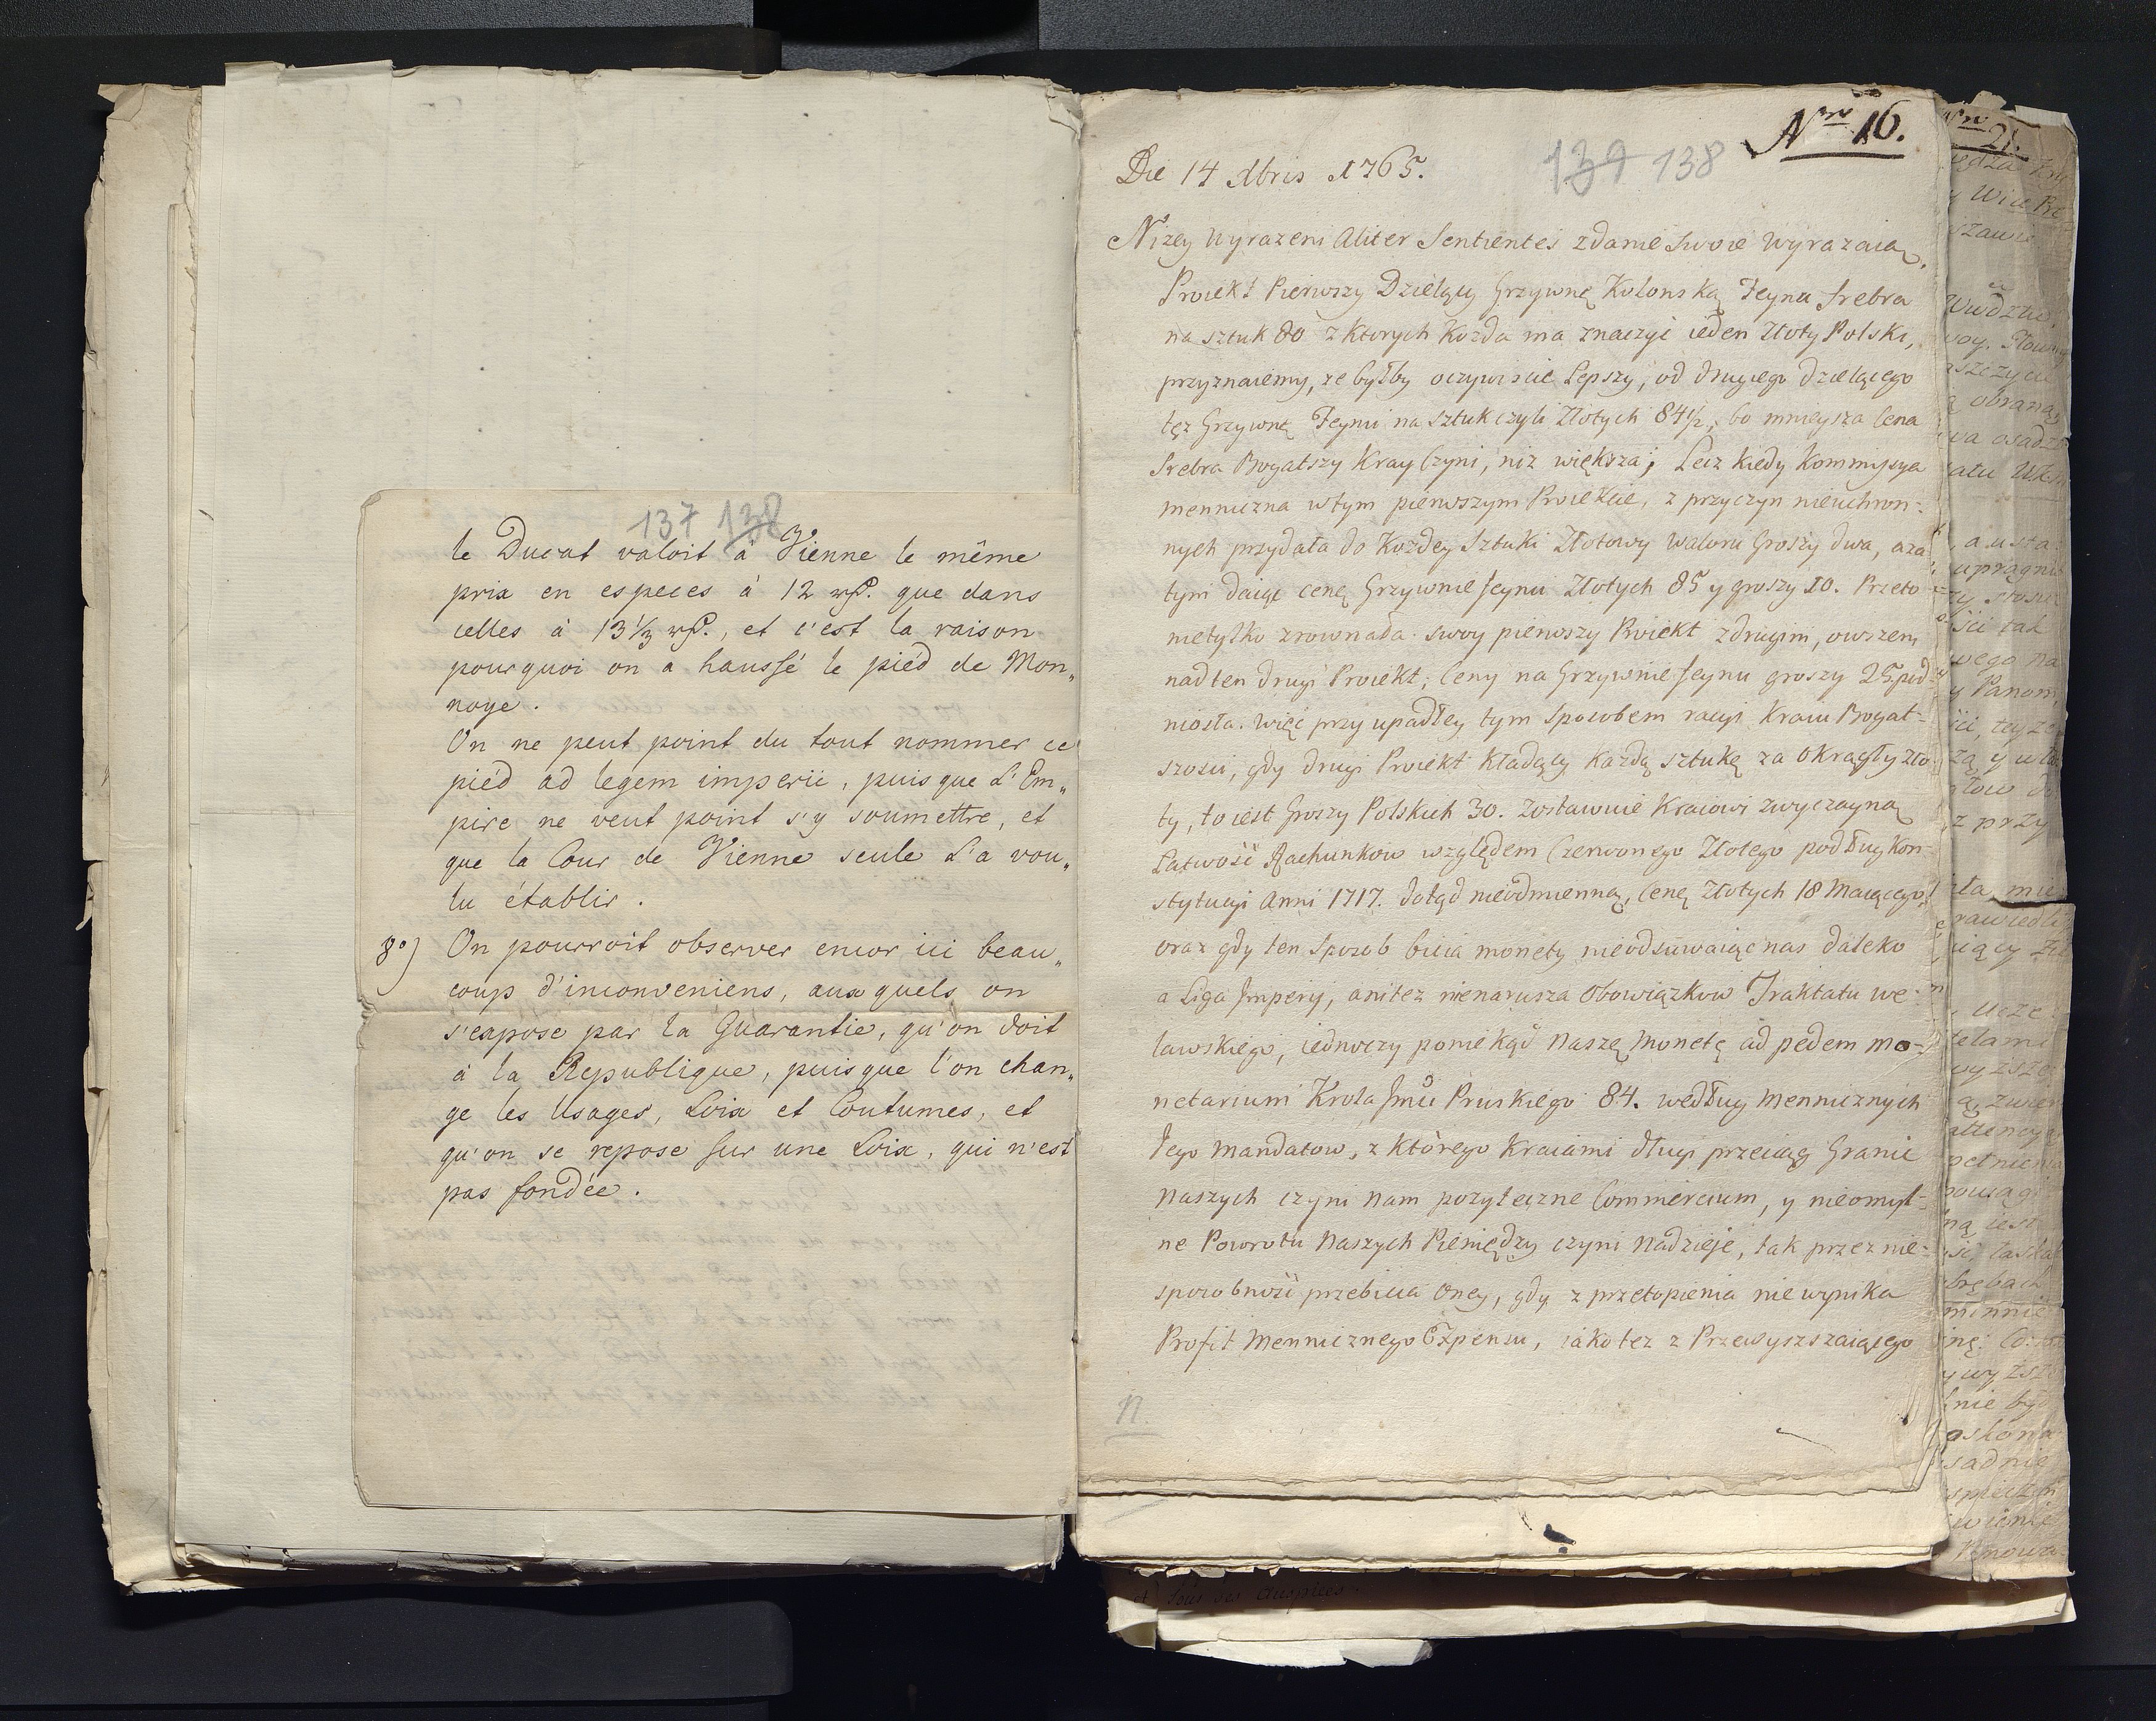 137 138
le Ducat valoit à Vienne le même
prix en especes à 12 rf. que dans
celles à 13⅓ rf., et c'est la raison
pourquoi on a haussé le piéd de Mon„
noye.
On ne peut point du tout nommer ce
piéd ad legem imperii, puisque L'Em„
pire ne veut point s'y soumettre, et
que la Cour de Vienne seule L'a vou„
lu établir.
8°) On pourroit observer encor ici beau„
coup d'inconveniens, aux quels on
s'expose par la Guarantie, qu'on doit
à la Republique, puisque l'on chan„
ge les Usages, Loix et Coutumes, et
qu'on se repose sur une Loix, qui n'est
pas fondée.
Nro 16.
139 138
Die 14 Xbris 1765.
Nizey Wyrazeni Aliter Sentientes zdanie Swoie Wyrazaią.
Proiekt Pierwszy Dzielący Grzywnę Kolonską Feynu Srebra
na sztuk 80 z ktorych kozda ma znaczyć ieden Złoty Polski,
przyznaiemy, ze byłby oczywiscie Lepszy, od drugiego dzielącego
tęz Grzywnę Feynu na sztuk czyli Złotych 84½, bo mnieysza Cena
Srebra Bogatszy Kray Czyni, niz większa; Lecz kiedy Kommissya
mennicza wtym pierwszym Proiekcie, z przyczyn nieuchron-
nych przydała do Kozdey Sztuki Złotowy waloru Groszy dwa, aza
tym daiąc cenę Grzywnie feynu Złotych 85 y groszy 10. Przeto
nietylko zrownała swoy pierwszy Proiekt zdrugim, owszem
nad ten drugi Proiekt; Ceny na Grzywnie feynu groszy 25. pod-
niosła. Więc przy upadłey tym sposobem racyi Kraiu Bogat-
szosci, gdy drugi Proiekt Kładący Każdą sztukę za Okrągły zło
ty, to iest Groszy Polskich 30. Zostawuie Kraiowi zwyczayną
Łatwość Rachunkow względem Czerwonego Złotego podług Kon-
stytucyi Anni 1717. dotąd nieodmienną, Cenę Złotych 18 Maiącego,
oraz gdy ten sposob bicia monety nieodsuwaiąc nas daleko
a Liga Imperij, anitez nienarusza Obowiązkow Traktatu We-
lawskiego, iednoczy poniekąd Naszę Monetę ad pedem mo-
netarium Krola Jmci Pruskiego 84. według Mennicznych
Iego Mandatow, z którego Kraiami długi przeciąg Granic
Naszych czyni Nam pozyteczne Commercium, y nieomyl-
ne Powrotu Naszych Pieniędzy czyni Nadzieje, tak przez nie-
sposobność przebicia Oney, gdy z przetopienia nie wynika
Profit Mennicznego Expensu, iako tez z Przewyszszaiącego